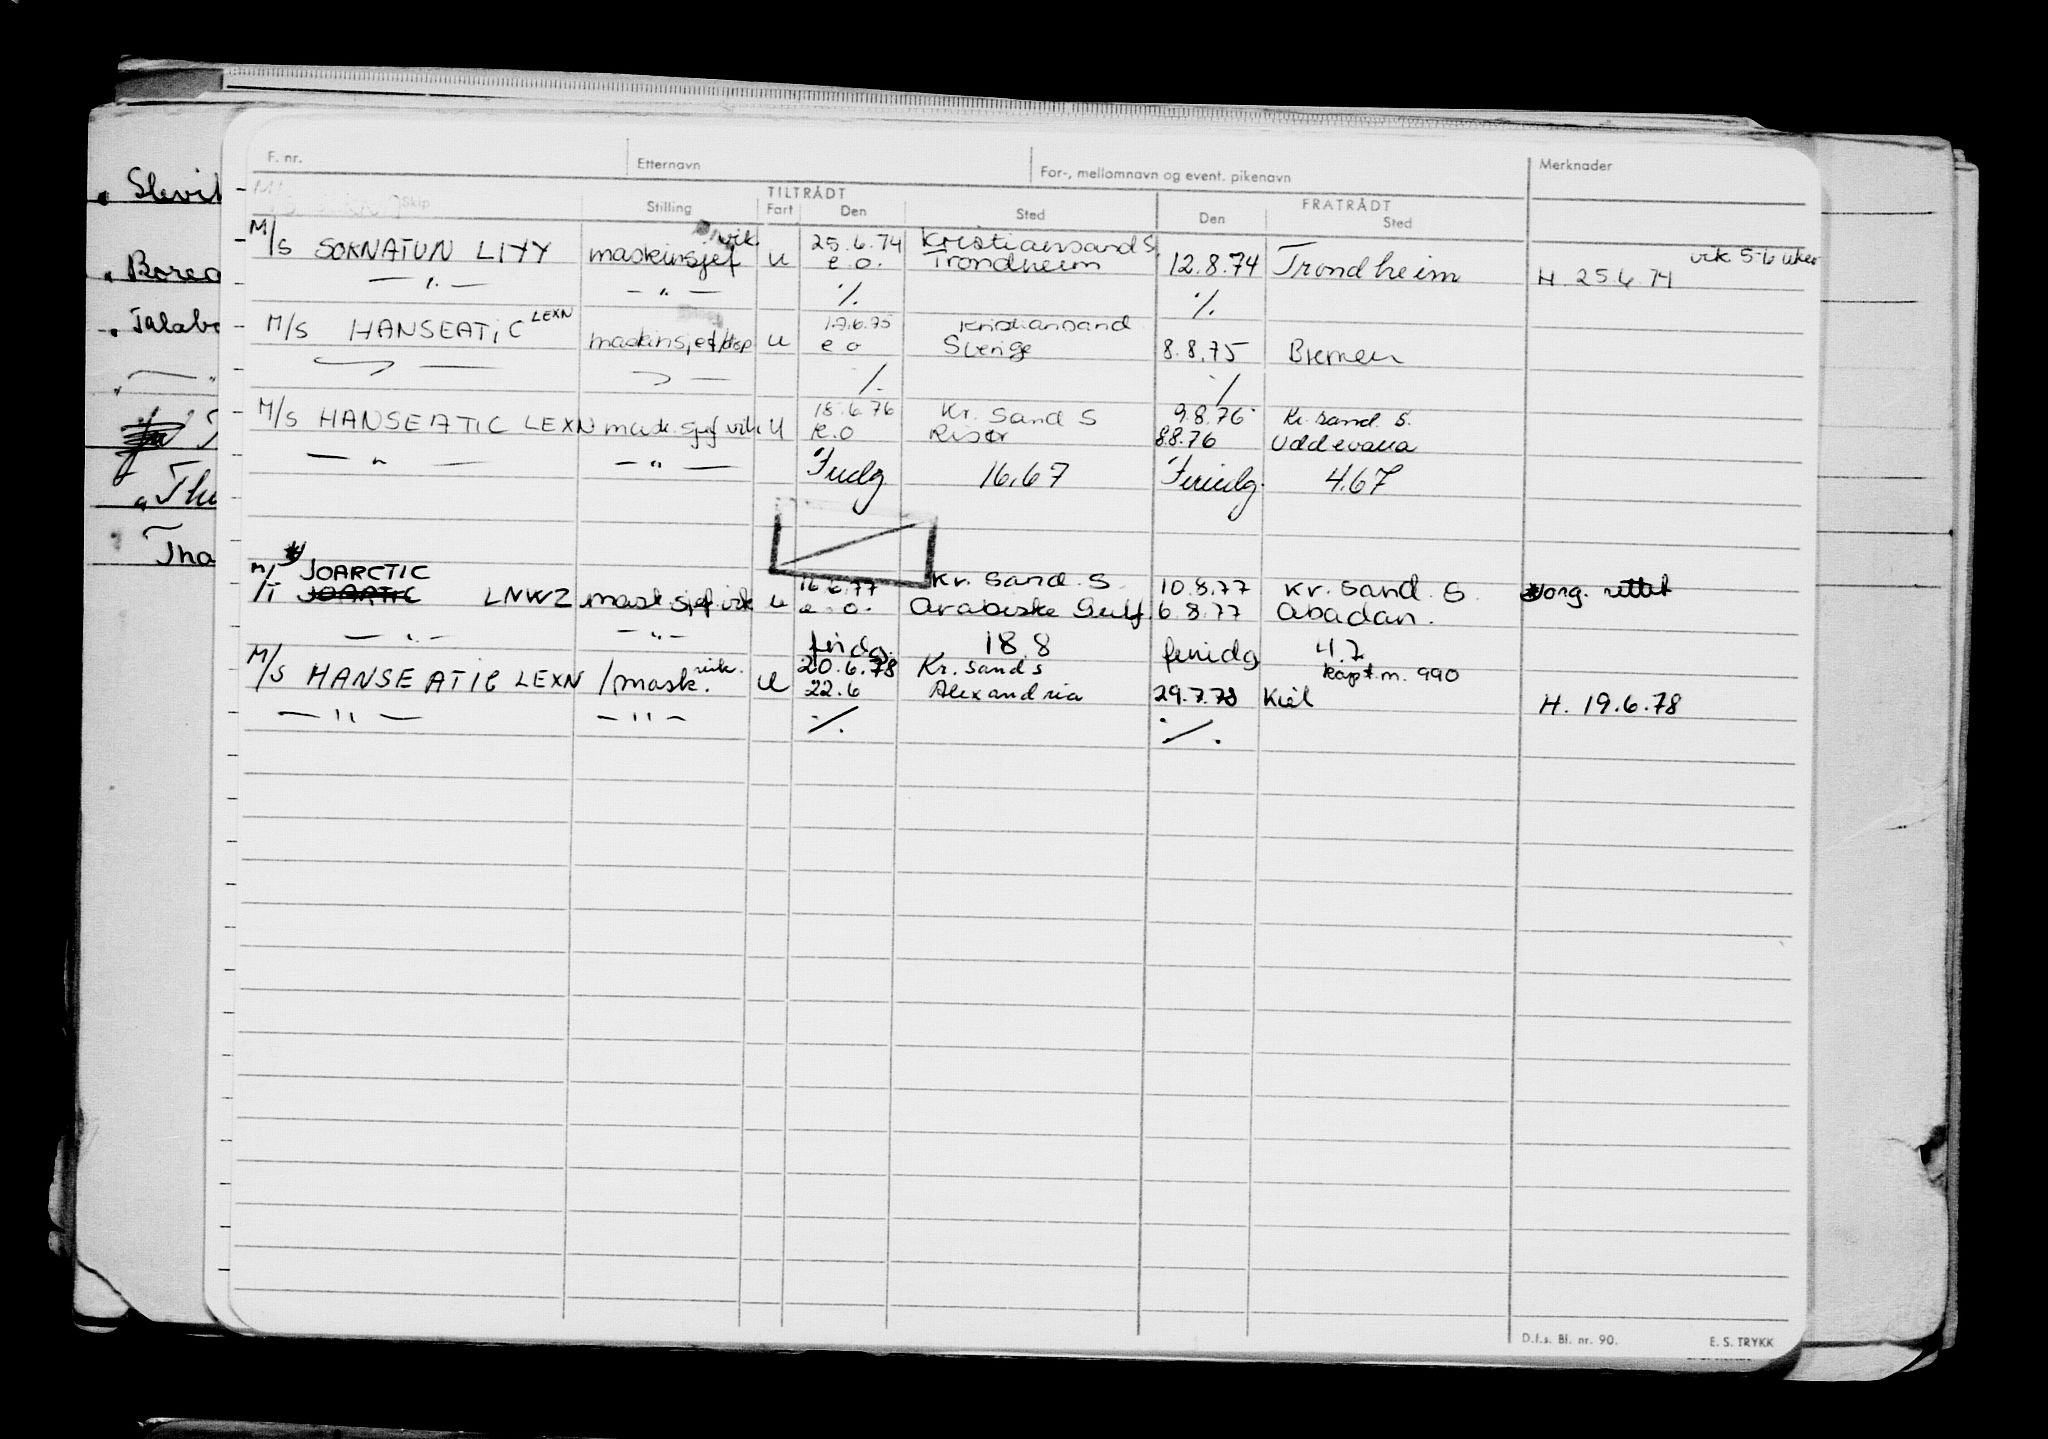 F. nr. Etternavn For-, mellomnavn og event. pikenavn Merknader
TILTRÅDT FRATRÅDT
Skip Stilling Fart Den Sted Den Sted
vik. 25.6.74 Kristiansand S. vik 5-6 uker
M/S SOKNATUN LIYY maskinsjef u e.o. Trondheim 12.8.74 Trondheim H. 25 6 74
— " — — " — ./. ./.
LEXN 17.6.75 Kristiansand
M/S HANSEATIC maskinsjef/disp u e o Sverige 8.8.75 Bremen
./. ./.
18.6.76 Kr. Sand S 9.8.76 Kr. Sand S.
M/S HANSEATIC LEXN mask. sjef vik. U e.o Risør 8.8.76 Uddevalla
— " — — " — Fridg 16.67 Feriedg. 4.67
JOARCTIC 16.6.77 Kr. Sand. S 10.8.77 Kr. Sand. S.
M/T LNWZ mask.sjef.vik u e.o. Arabiske Gulf. 6.8.77 Abadan. orig. rettet
— " — — " — fridg. 18.8 feriedg 4.7
vik. 20.6.78 Kr. Sand S kapt.m. 990
M/S HANSEATIC LEXN 1mask. U 22.6 Alexandria 29.7.78 Kiel H. 19.6.78
— " — — " — ./. ./.
D.f.s. Bl. nr. 90. E. S. TRYKK